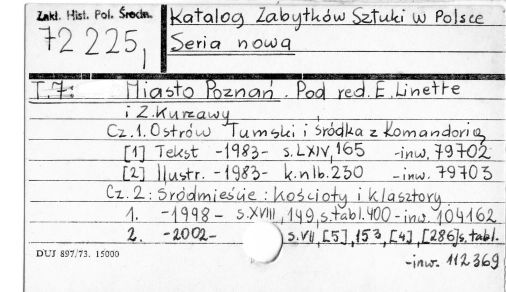 Zakł. Hist. Pol. Średn.
72 225,
Katalog Zabytków Sztuki w Polsce
Seria nowa
T.7: Miasto Poznań. Pod red. E. Linette
i Z. Kurzawy
Cz.1. Ostrów Tumski i Śródka z Komandorią
[1] Tekst -1983- s. LXIV, 165 -inw. 79702
[2] Ilustr. -1983- k. nlb. 230 -inw. 79703
Cz.2: Śródmieście: kościoły i klasztory
1. -1998- s. XVIII, 149, s. tabl. 400 -inw. 104162
2. -2002- s. VII, [5], 153, [4], [286] s. tabl.
-inw. 112369
DUJ 897/73. 15000